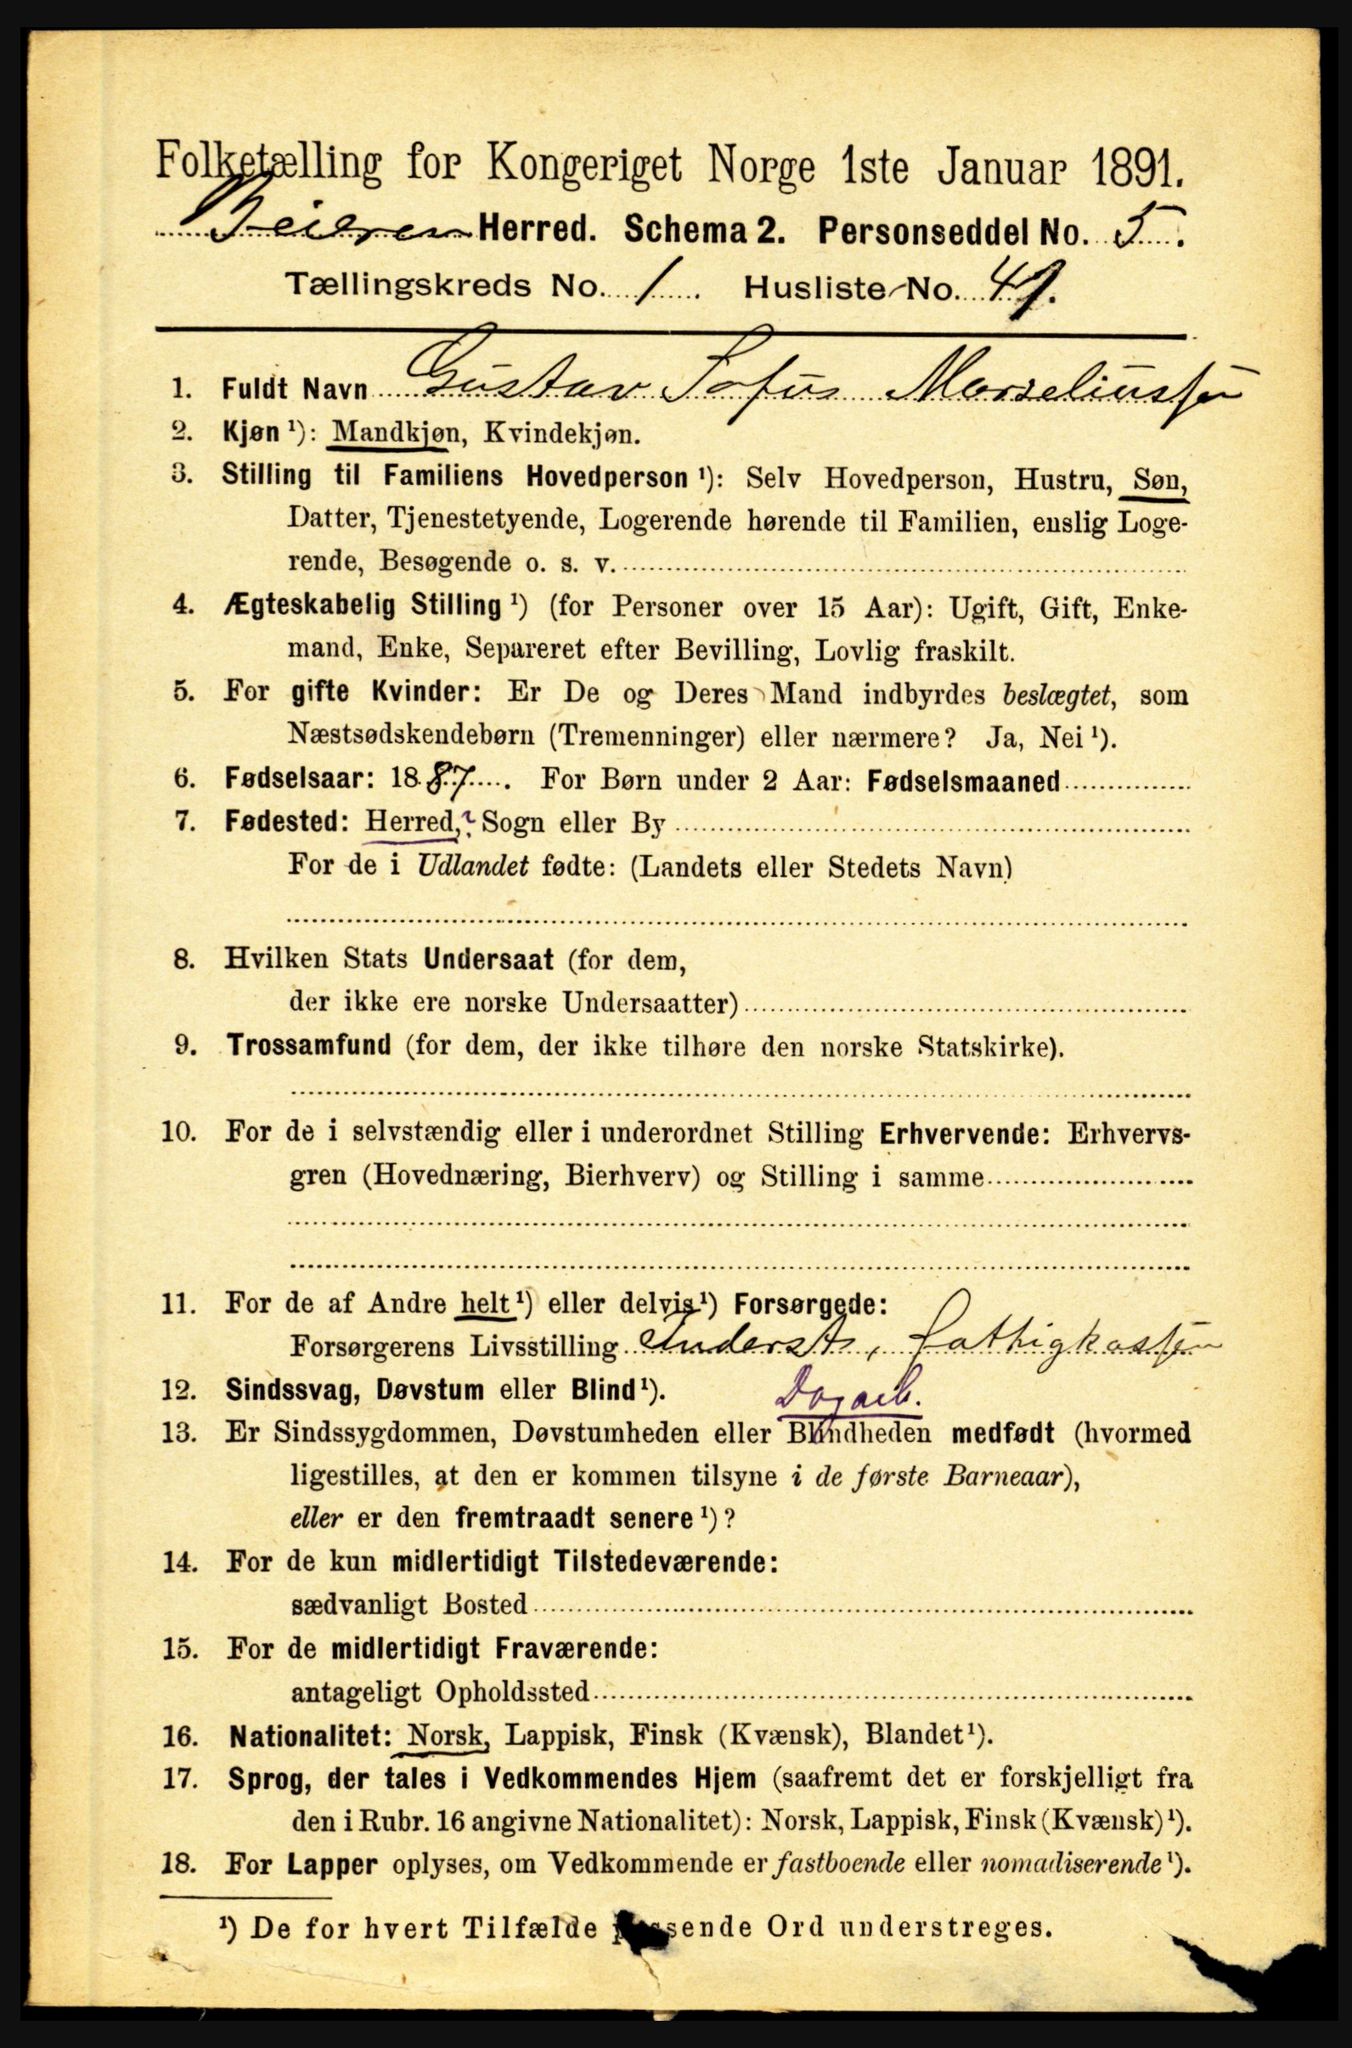 Folketælling for Kongeriget Norge 1ste Januar 1891.
Beieren Herred. Schema 2. Personseddel No. 5.
Tællingskreds No. 1. Husliste No. 49.
1. Fuldt Navn Gustav Sofus Morseliussen
2. Kjøn ¹): Mandkjøn, Kvindekjøn.
3. Stilling til Familiens Hovedperson ¹): Selv Hovedperson, Hustru, Søn,
Datter, Tjenestetyende, Logerende hørende til Familien, enslig Loge-
rende, Besøgende o. s. v.
4. Ægteskabelig Stilling ¹) (for Personer over 15 Aar): Ugift, Gift, Enke-
mand, Enke, Separeret efter Bevilling, Lovlig fraskilt.
5. For gifte Kvinder: Er De og Deres Mand indbyrdes beslægtet, som
Næstsødskendebørn (Tremenninger) eller nærmere? Ja, Nei ¹).
6. Fødselsaar: 1887. For Børn under 2 Aar: Fødselsmaaned
7. Fødested: Herred, Sogn eller By
For de i Udlandet fødte: (Landets eller Stedets Navn)
8. Hvilken Stats Undersaat (for dem,
der ikke ere norske Undersaatter)
9. Trossamfund (for dem, der ikke tilhøre den norske Statskirke).
10. For de i selvstændig eller i underordnet Stilling Erhvervende: Erhvervs-
gren (Hovednæring, Bierhverv) og Stilling i samme
11. For de af Andre helt ¹) eller delvis ¹) Forsørgede:
Forsørgerens Livsstilling Underst., fattigkassen
12. Sindssvag, Døvstum eller Blind ¹). Dagarb.
13. Er Sindssygdommen, Døvstumheden eller Blindheden medfødt (hvormed
ligestilles, at den er kommen tilsyne i de første Barneaar),
eller er den fremtraadt senere ¹)?
14. For de kun midlertidigt Tilstedeværende:
sædvanligt Bosted
15. For de midlertidigt Fraværende:
antageligt Opholdssted
16. Nationalitet: Norsk, Lappisk, Finsk (Kvænsk), Blandet ¹).
17. Sprog, der tales i Vedkommendes Hjem (saafremt det er forskjelligt fra
den i Rubr. 16 angivne Nationalitet): Norsk, Lappisk, Finsk (Kvænsk) ¹).
18. For Lapper oplyses, om Vedkommende er fastboende eller nomadiserende ¹).
¹) De for hvert Tilfælde passende Ord understreges.